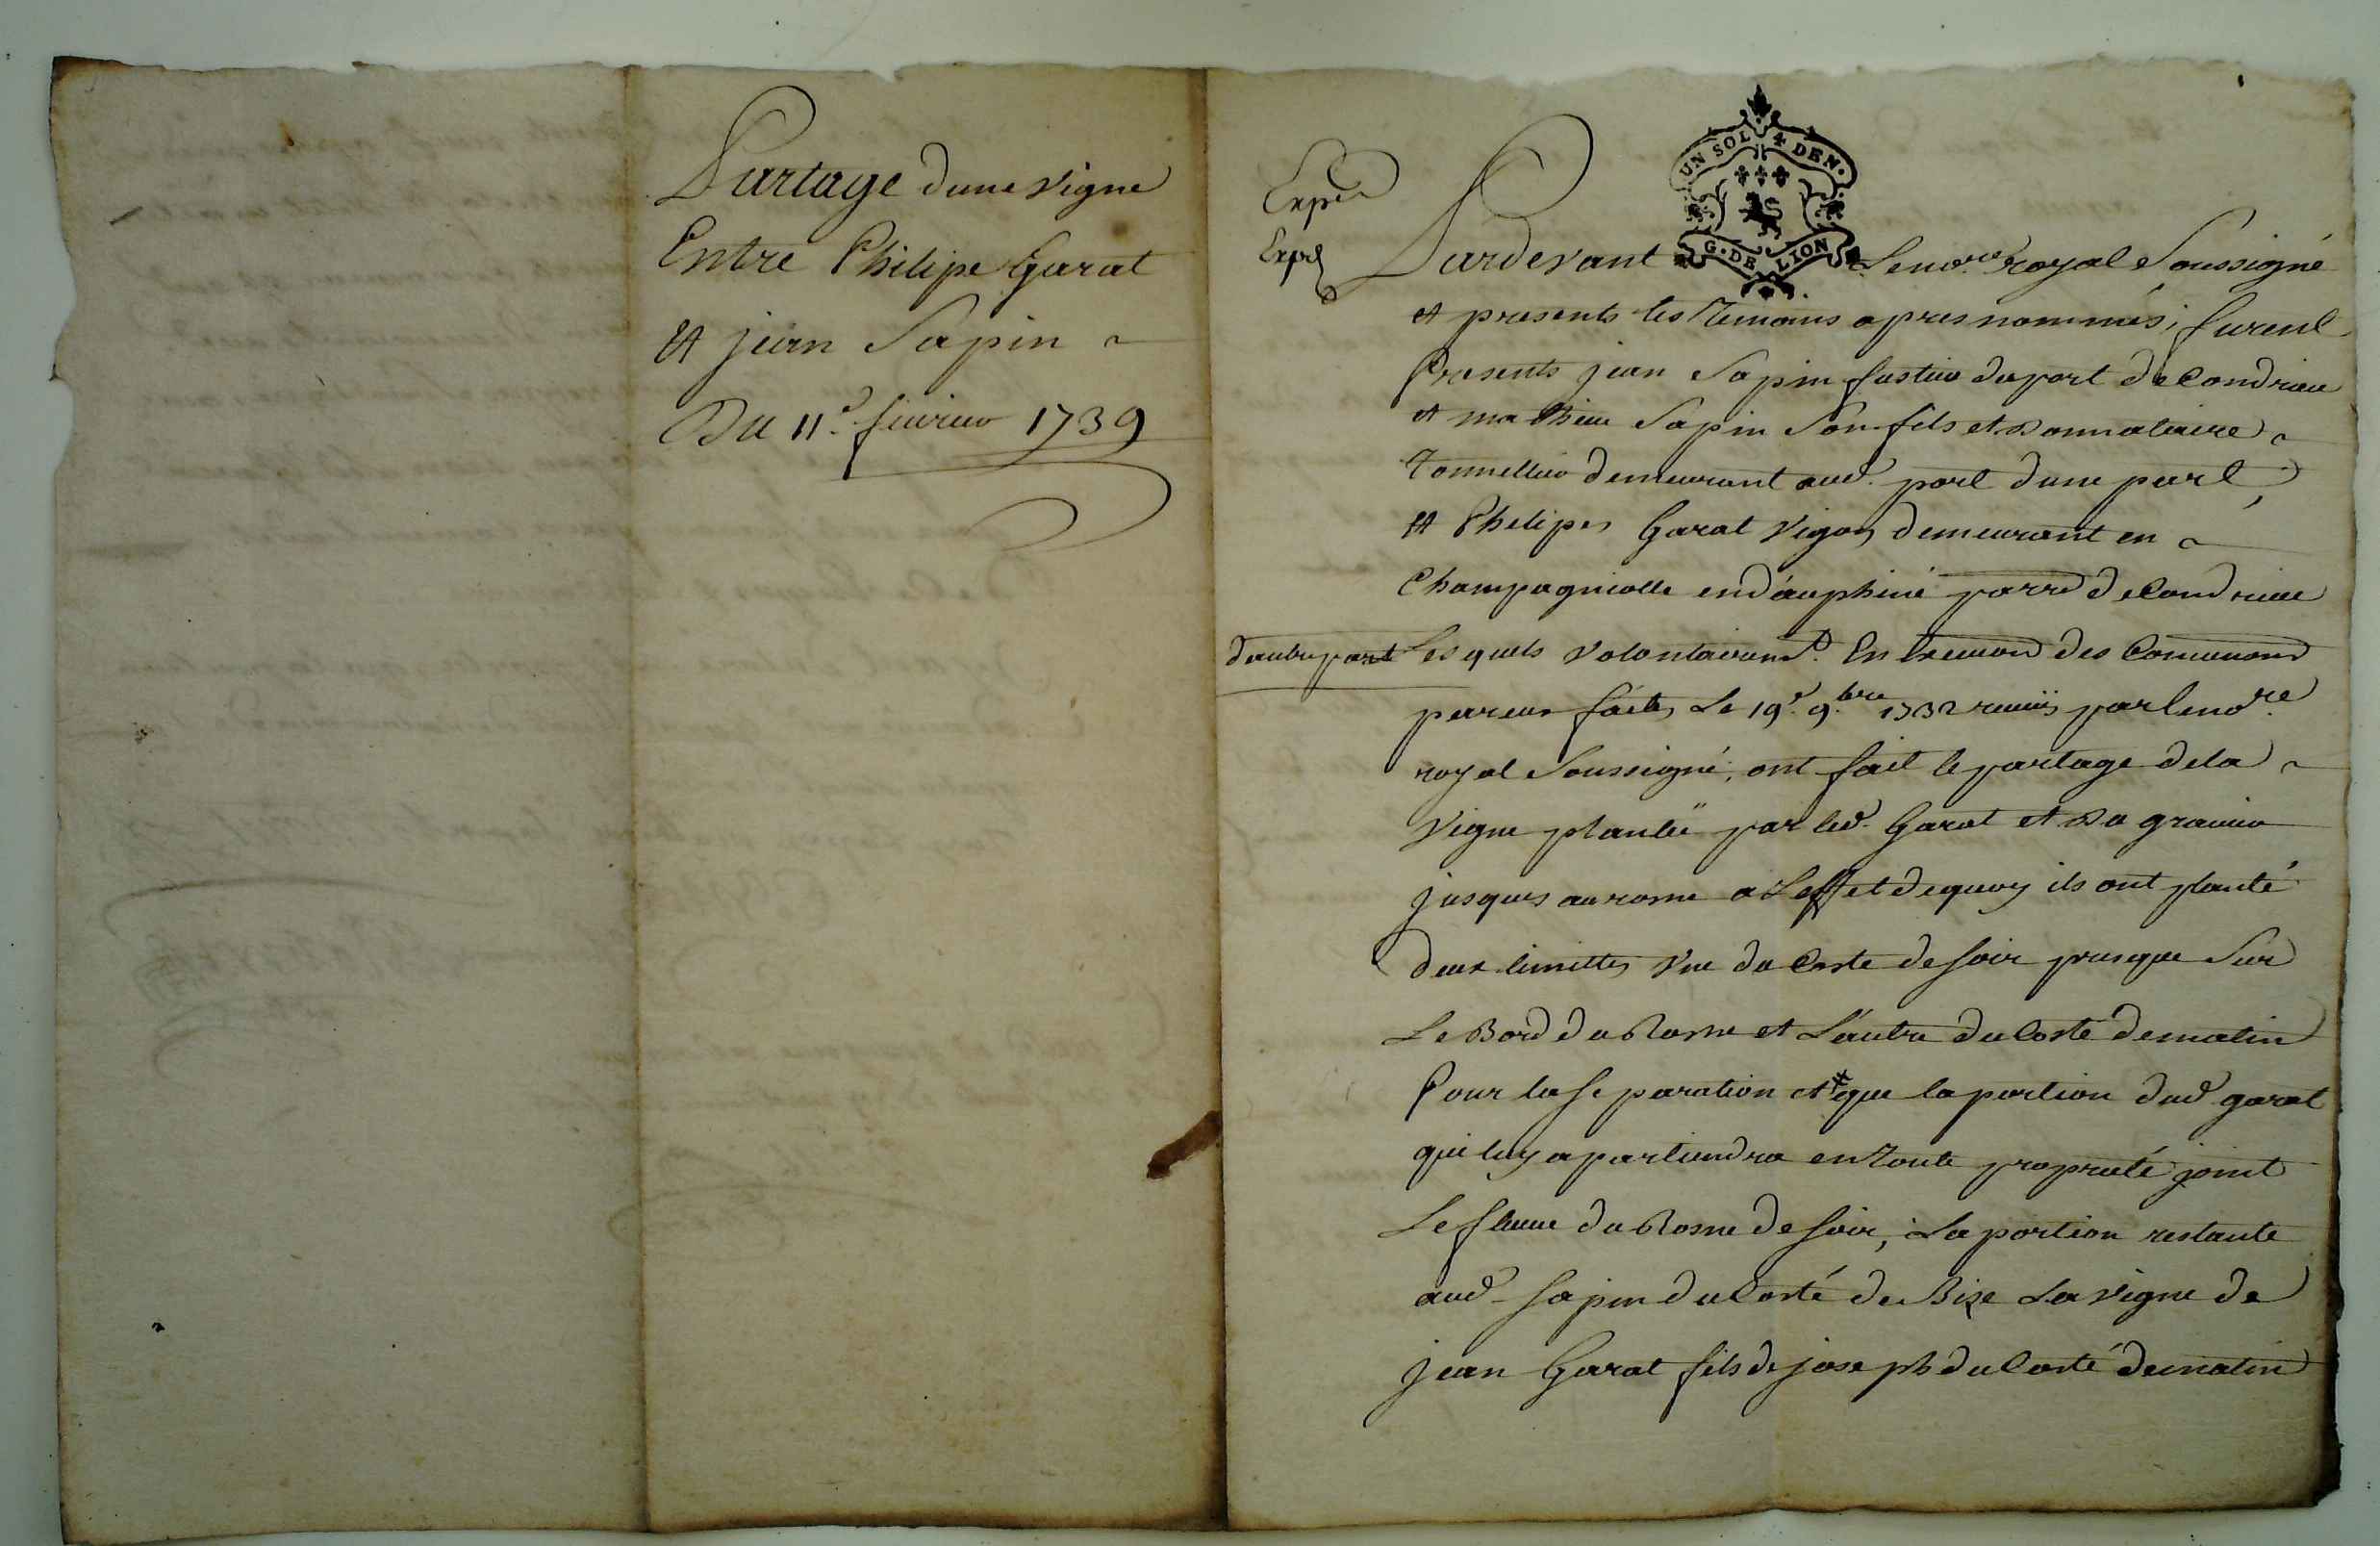 Partage dune vigne
Entre Philipe Garat
Et jean Sapin
Du 11e. fevrier 1739
UN SOL 4 DEN.
G. DE LION
Expé
Expé
Pardevant Le nore. royal Soussigné
et presents les Temoins apres nommés, furent
Presents jean Sapin fustier du port de Condrieu
et mathieu Sapin Son fils et Donnataire
Tonnellier demeurant aud. port dune part,
Et Phelipes Garat Vigon demeurant en
Champagniolle en dauphiné parre de Condrieu
dautre part Lesquels volontairemt. En des Conventions
par eux faites Le 19e. 9.bre 1732 par le nore.
royal Soussigné, ont fait le partage de la
Vigne plantée par led. Garat et Du gravier
jusques au rosne a Leffet de quoy ils ont planté
deux limittes Vne du Costé de soir presque Sur
Le Bord du Rosne et L'autre du Costé de matin
Pour la Separation et que la portion dud. garat
qui luy apartiendra en Toute proprieté joint
Le fleuve du Rosne de soir, La portion restante
aud. Sapin du Costé de Bize La vigne de
jean Garat fils de joseph du Costé de matin